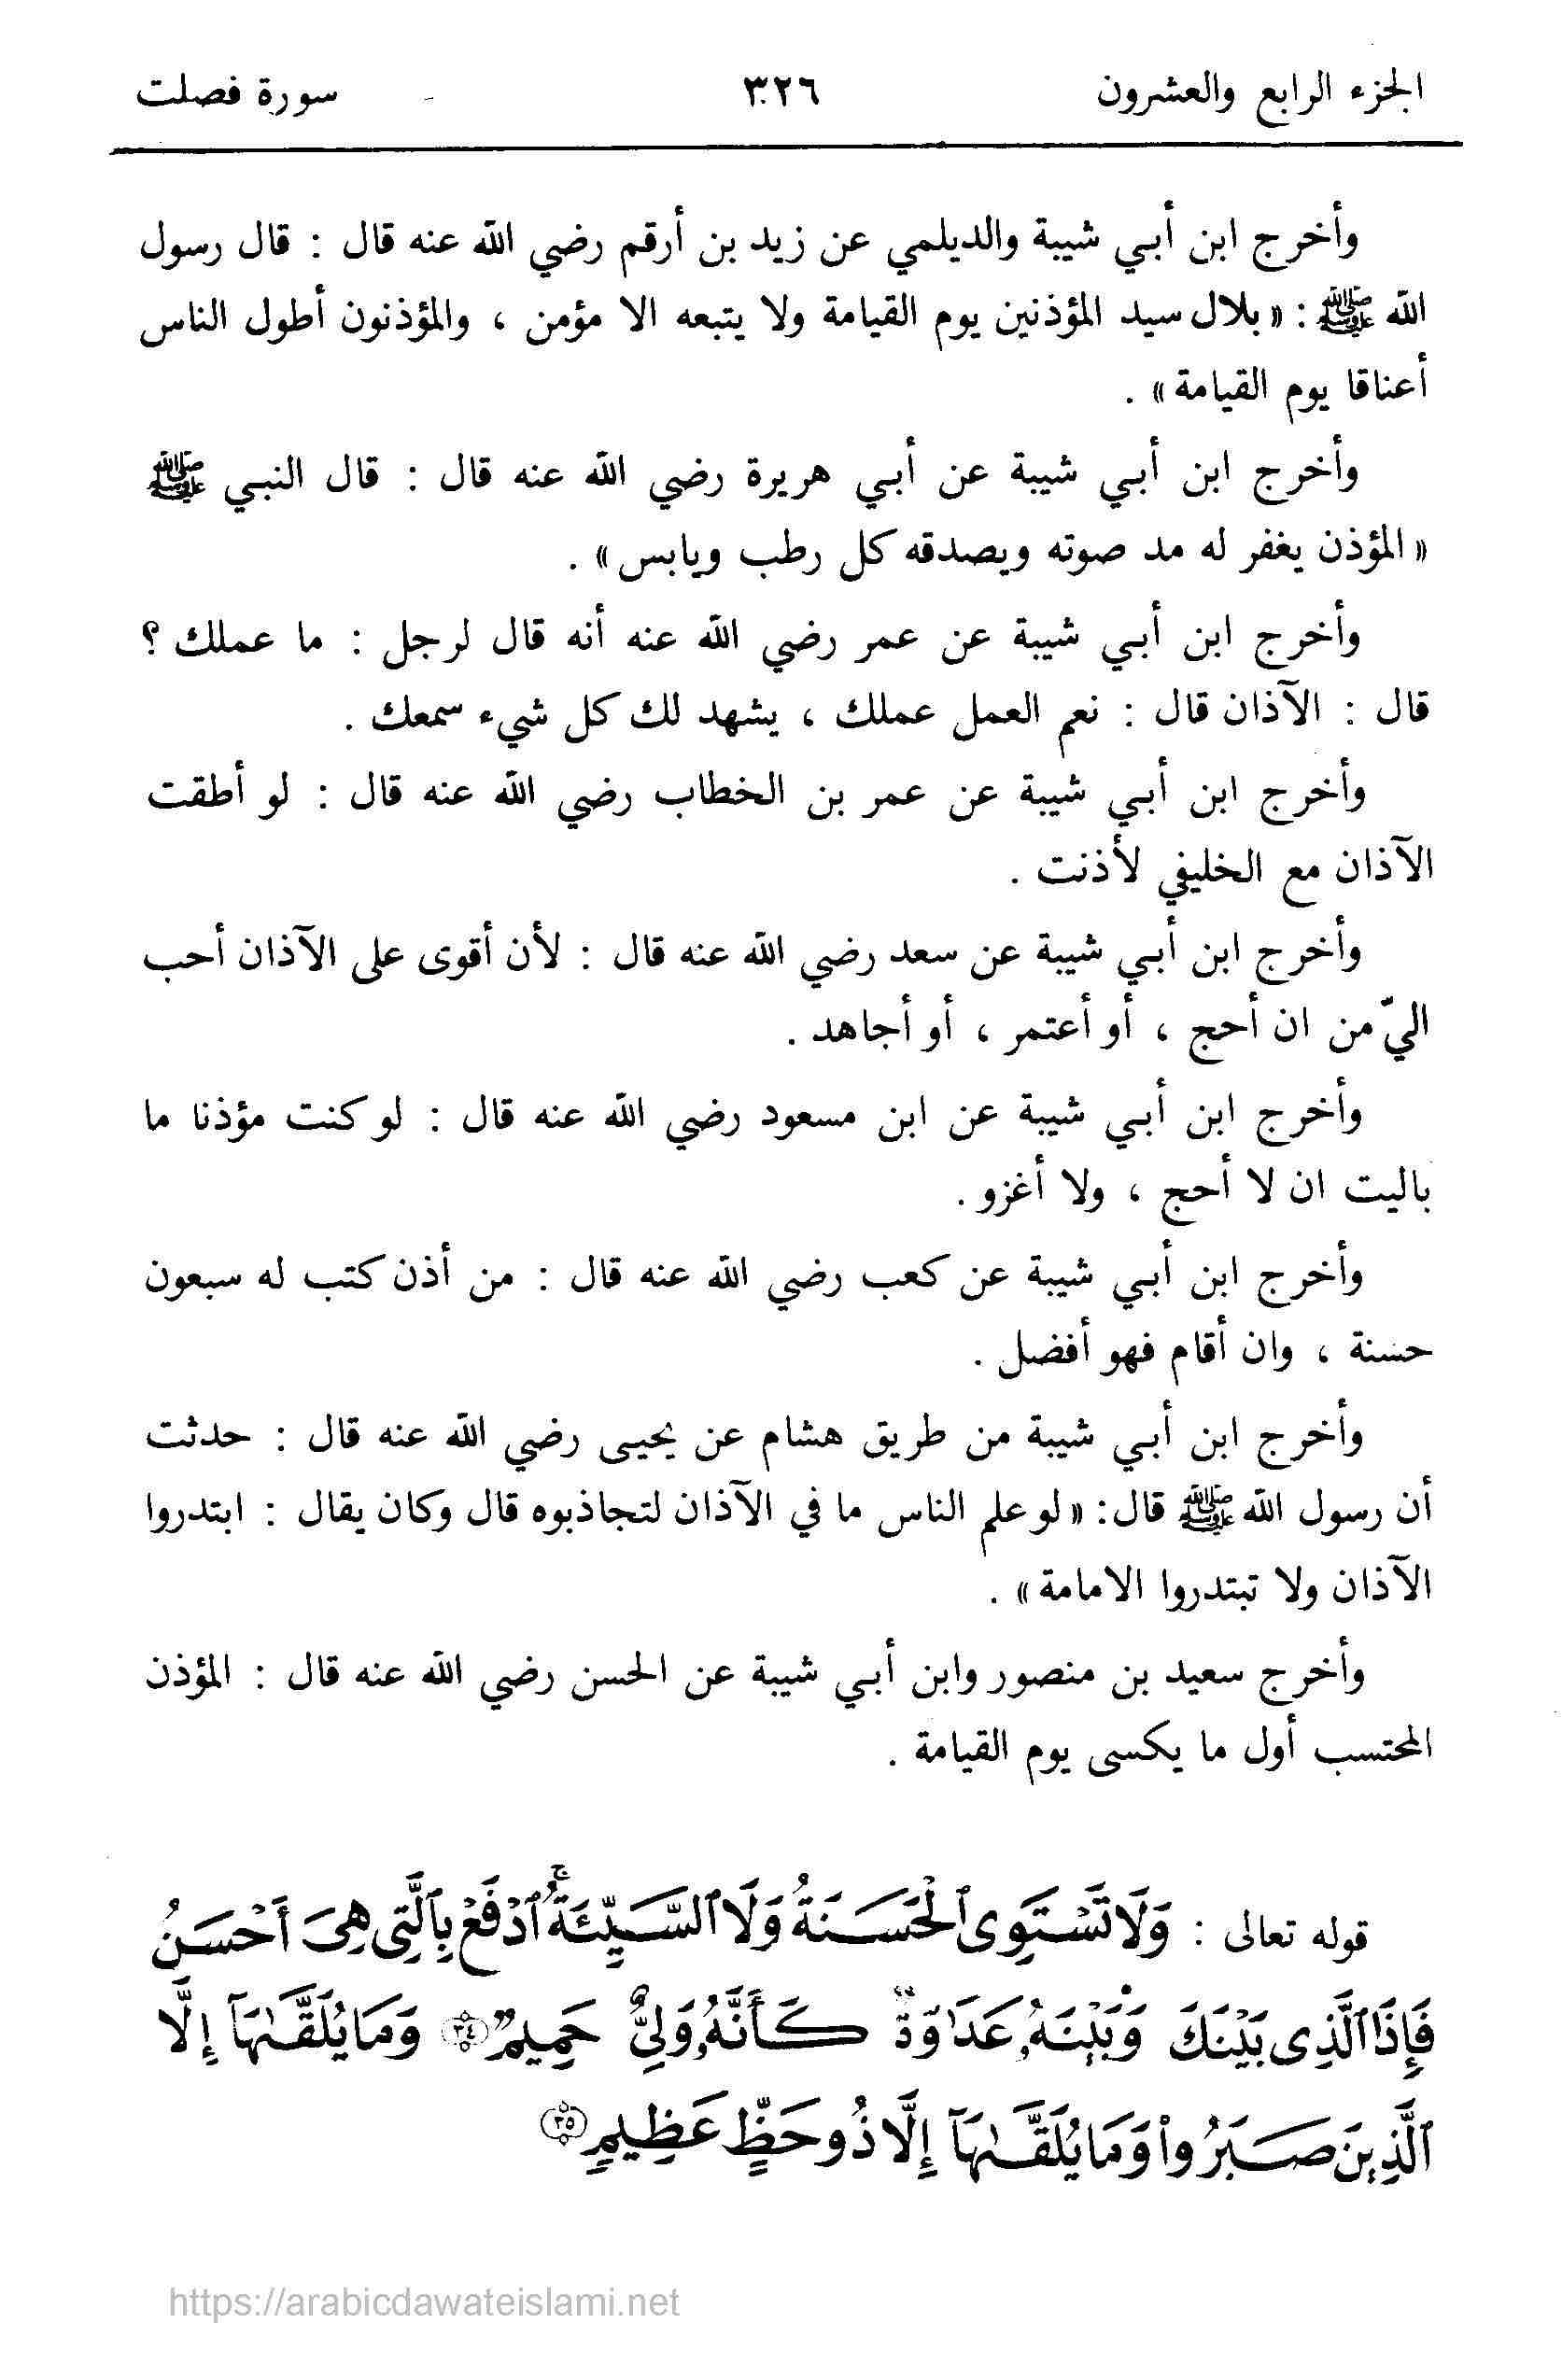 الجزء الرابع والعشرون ٣٢٦ سورة فصلت
وأخرج ابن أبي شيبة والديلمي عن زيد بن أرقم رضي الله عنه قال : قال رسول
الله ﷺ : « بلال سيد المؤذنين يوم القيامة ولا يتبعه الا مؤمن ، والمؤذنون أطول الناس
أعناقا يوم القيامة » .
وأخرج ابن أبي شيبة عن أبي هريرة رضي الله عنه قال : قال النبي ﷺ
« المؤذن يغفر له مد صوته ويصدقه كل رطب ويابس » .
وأخرج ابن أبي شيبة عن عمر رضي الله عنه أنه قال لرجل : ما عملك ؟
قال : الآذان قال : نعم العمل عملك ، يشهد لك كل شيء سمعك .
وأخرج ابن أبي شيبة عن عمر بن الخطاب رضي الله عنه قال : لو أطقت
الآذان مع الخليفي لأذنت .
وأخرج ابن أبي شيبة عن سعد رضي الله عنه قال : لأن أقوى على الآذان أحب
اليّ من ان أحج ، أو أعتمر ، أو أجاهد .
وأخرج ابن أبي شيبة عن ابن مسعود رضي الله عنه قال : لو كنت مؤذنا ما
باليت ان لا أحج ، ولا أغزو .
وأخرج ابن أبي شيبة عن كعب رضي الله عنه قال : من أذن كتب له سبعون
حسنة ، وان أقام فهو أفضل .
وأخرج ابن أبي شيبة من طريق هشام عن يحيى رضي الله عنه قال : حدثت
أن رسول الله ﷺ قال : « لو علم الناس ما في الآذان لتجاذبوه قال وكان يقال : ابتدروا
الآذان ولا تبتدروا الامامة » .
وأخرج سعيد بن منصور وابن أبي شيبة عن الحسن رضي الله عنه قال : المؤذن
المحتسب أول ما يكسى يوم القيامة .
قوله تعالى : وَلَا تَسْتَوِى ٱلْحَسَنَةُ وَلَا ٱلسَّيِّئَةُ ۚ ٱدْفَعْ بِٱلَّتِى هِىَ أَحْسَنُ
فَإِذَا ٱلَّذِى بَيْنَكَ وَبَيْنَهُۥ عَدَٰوَةٌ كَأَنَّهُۥ وَلِىٌّ حَمِيمٌ ﴿٣٤﴾ وَمَا يُلَقَّىٰهَآ إِلَّا
ٱلَّذِينَ صَبَرُوا۟ وَمَا يُلَقَّىٰهَآ إِلَّا ذُو حَظٍّ عَظِيمٍ ﴿٣٥﴾
https://arabicdawateislami.net